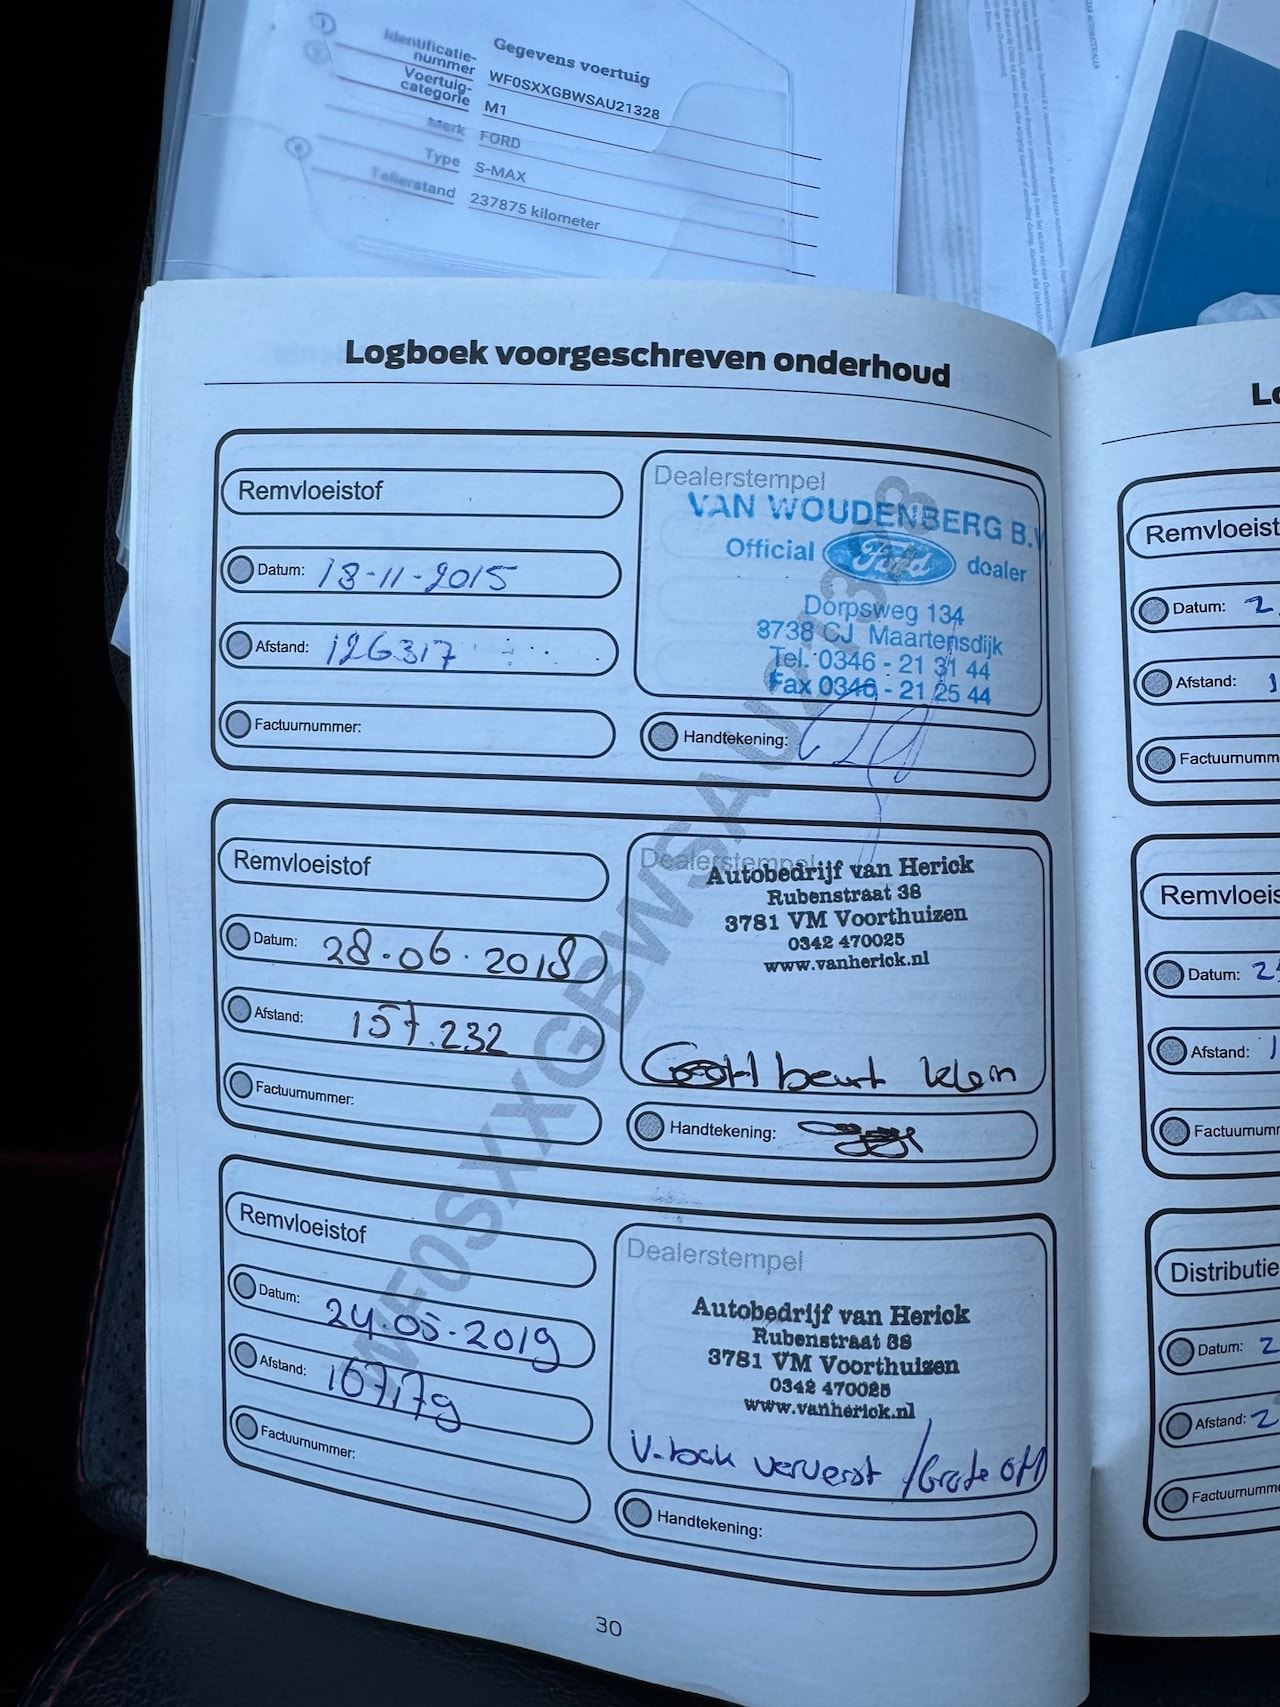 Gegevens voertuig
Identificatie-
nummer WF0SXXGBWSAU21328
Voertuig-
categorie M1
Merk FORD
Type S-MAX
Tellerstand 237875 kilometer
Logboek voorgeschreven onderhoud
Remvloeistof
Datum: 18-11-2015
Afstand: 126317
Factuurnummer:
Dealerstempel
VAN WOUDENBERG B.V
Official Ford dealer
Dorpsweg 134
3738 CJ Maartensdijk
Tel. 0346 - 21 31 44
Fax 0346 - 21 25 44
Handtekening:
Remvloeistof
Datum: 28-06-2018
Afstand: 157.232
Factuurnummer:
Dealerstempel
Autobedrijf van Herick
Rubenstraat 38
3781 VM Voorthuizen
0342 470025
www.vanherick.nl
beurt klein
Handtekening:
Remvloeistof
Datum: 24-05-2019
Afstand: 167179
Factuurnummer:
Dealerstempel
Autobedrijf van Herick
Rubenstraat 38
3781 VM Voorthuizen
0342 470025
www.vanherick.nl
V-bak ververst / Grote
Handtekening:
WF0SXXGBWSAU21328
30
Lo
Remvloeist
Datum: 2
Afstand: 1
Factuurnumm
Remvloeis
Datum: 2
Afstand: 1
Factuurnumm
Distributie
Datum: 2
Afstand: 2
Factuurnumme